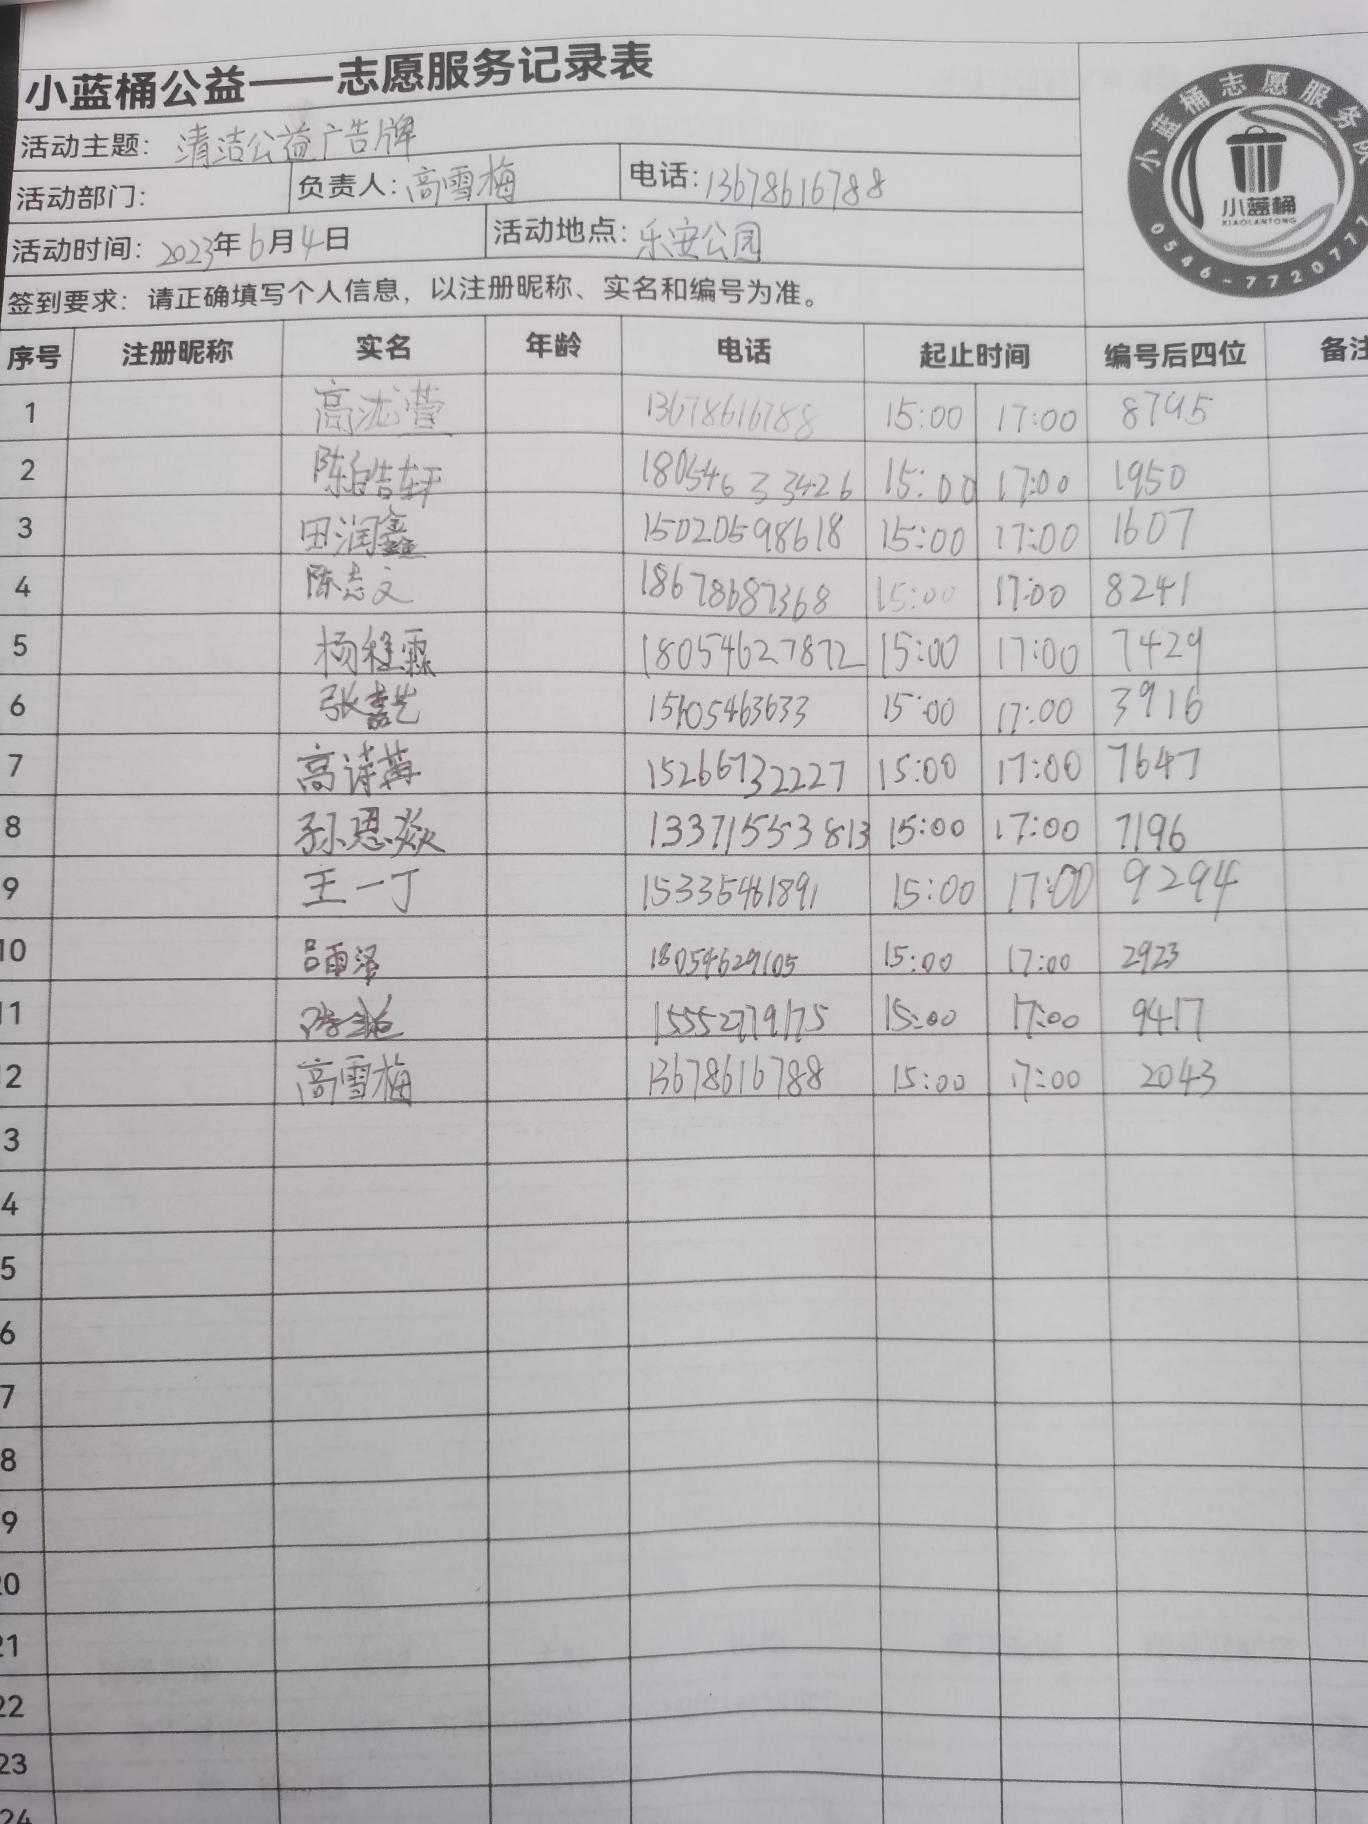 小蓝桶公益——志愿服务记录表
活动主题：清洁公益广告牌
活动部门： 负责人：高雪梅 电话：13678616788
活动时间：2023年6月4日 活动地点：乐安公园
签到要求：请正确填写个人信息，以注册昵称、实名和编号为准。
小蓝桶志愿服务
小蓝桶
XIAOLANTONG
0546-7720777
序号 注册昵称 实名 年龄 电话 起止时间 编号后四位 备注
1 高 萱 13678616788 15:00 17:00 8795
2 陈皓轩 18054633426 15:00 17:00 1950
3 田润鑫 15020598618 15:00 17:00 1607
4 陈志文 18678687368 15:00 17:00 8241
5 杨 霖 18054627872 15:00 17:00 7429
6 张 艺 15:00 17:00 3916
7 高诗苒 15266732227 15:00 17:00 7647
8 孙思焱 13371553813 15:00 17:00 7196
9 王一丁 15335461891 15:00 17:00 9294
10 吕雨泽 18054629105 15:00 17:00 2923
11 15552779175 15:00 17:00 9417
12 高雪梅 13678616788 15:00 17:00 2043
3
4
5
6
7
8
9
20
21
22
23
24